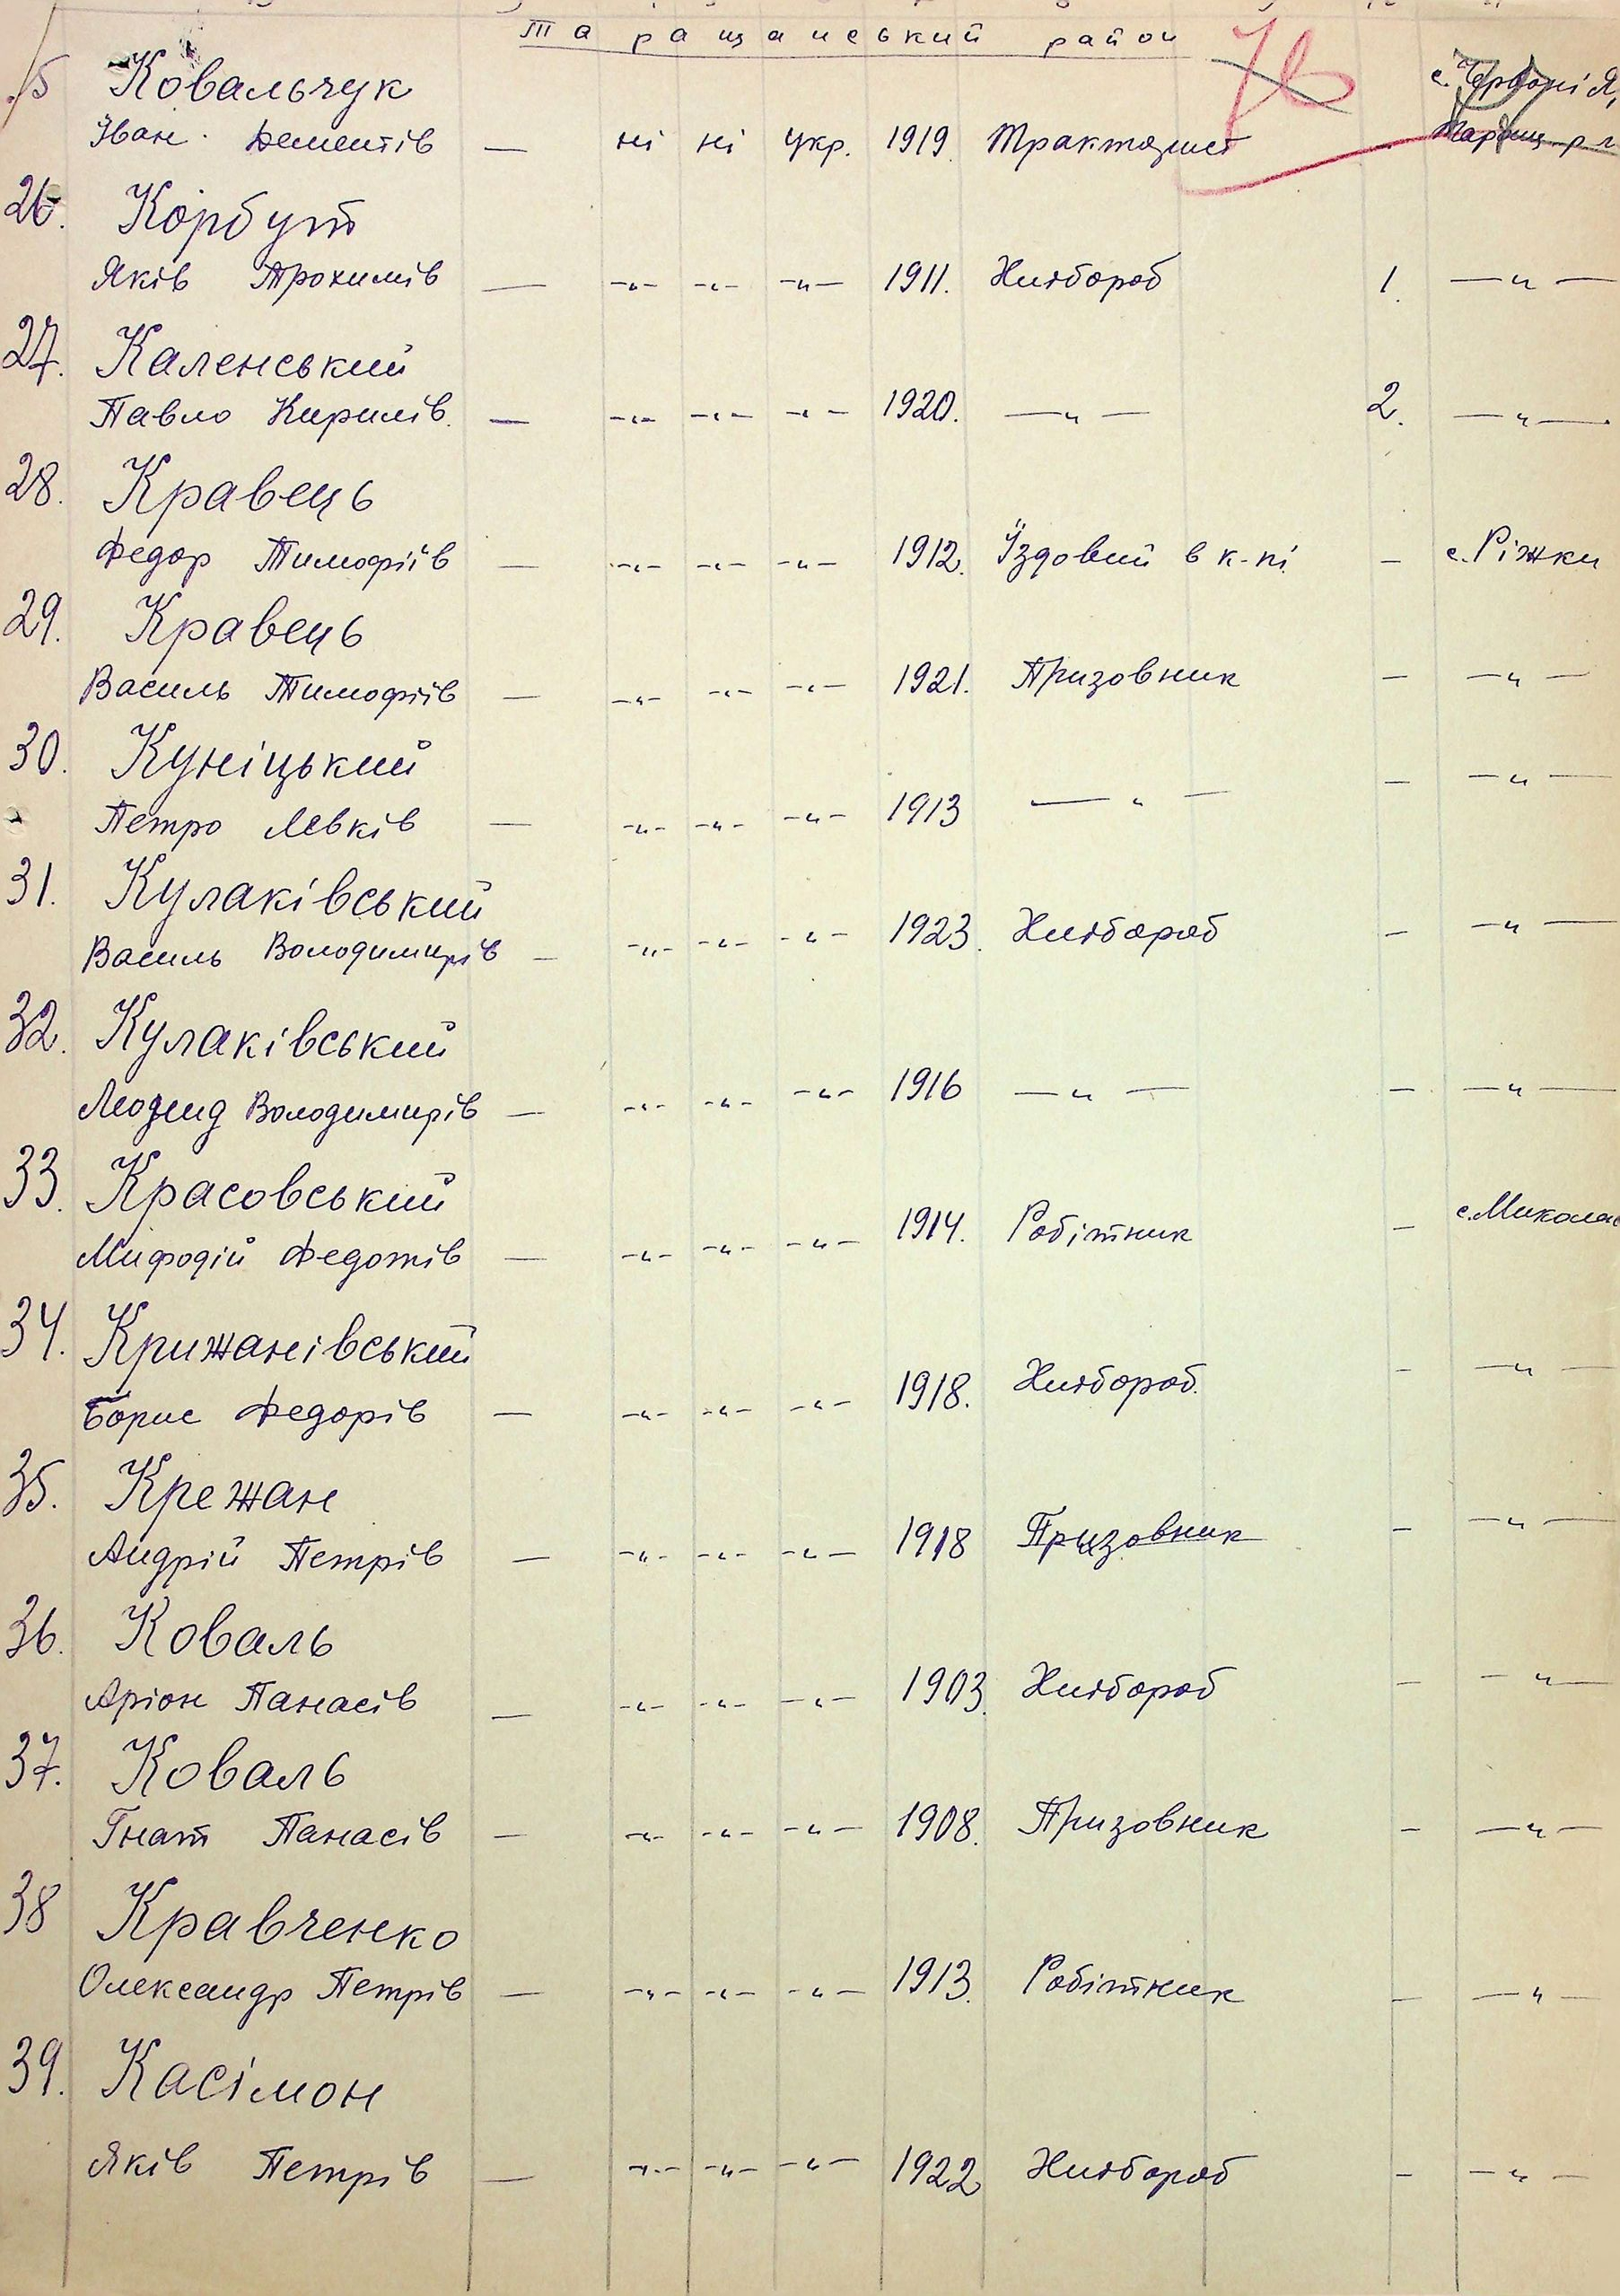 Таращанський район
7в
Ковальчук с. Червоні Я
Іван Дементів — ні ні укр. 1919 Тракторист - Таращ. р-н
26. Корбут
Яків Трохимів — -"- -"- -"- 1911. Хлібороб 1. —"—
27. Каленський
Павло Кирилів. — -"- -"- -"- 1920. —"— 2. —"—
28. Кравець
Федор Тимофіїв — -"- -"- -"- 1912. Їздовий в к-пі — с. Ріжки
29. Кравець
Василь Тимофіїв — -"- -"- -"- 1921. Призовник — —"—
30. Куніцький
Петро Левків — -"- -"- -"- 1913 —"— — —"—
31. Кулаківський
Василь Володимирів — -"- -"- -"- 1923. Хлібороб — —"—
32. Кулаківський
Володимирів — -"- -"- -"- 1916 —"— — —"—
33. Красовський
Мифодій Федотів — -"- -"- -"- 1914. Робітник — с. Микола
34. Крижанівський
Борис Федорів — -"- -"- -"- 1918. Хлібороб. — —"—
35. Крежан
Андрій Петрів — -"- -"- -"- 1918 Призовник — —"—
36. Коваль
Аріон Панасів — -"- -"- -"- 1903. Хлібороб — —"—
37. Коваль
Гнат Панасів — -"- -"- -"- 1908. Призовник — —"—
38 Кравченко
Олександр Петрів — -"- -"- -"- 1913. Робітник — —"—
39. Касімон
Яків Петрів — -"- -"- -"- 1922 Хлібороб — —"—